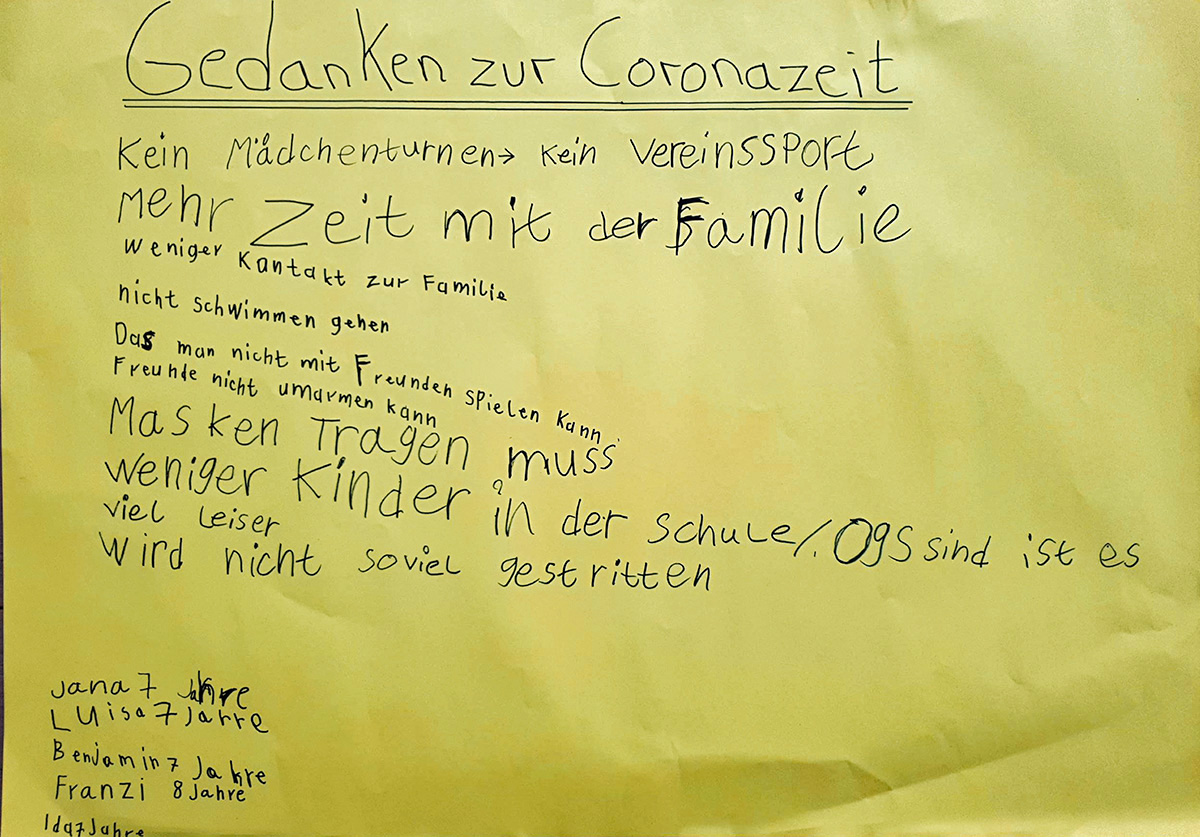 Gedanken zur Coronazeit
Kein Mädchenturnen→ Kein Vereinssport
Mehr Zeit mit der Familie
Weniger Kantakt zur Familie
nicht schwimmen gehen
Das man nicht mit Freunden spielen kann
Freunde nicht umarmen kann
Masken Tragen muss
weniger Kinder in der Schule/. Ogs sind ist es
viel leiser
Wird nicht soviel gestritten
Jana 7 Jahre
Luisa 7 Jarre
Benjamin 7 Jahre
Franzi 8 Jahre
Ida 7 Jahre